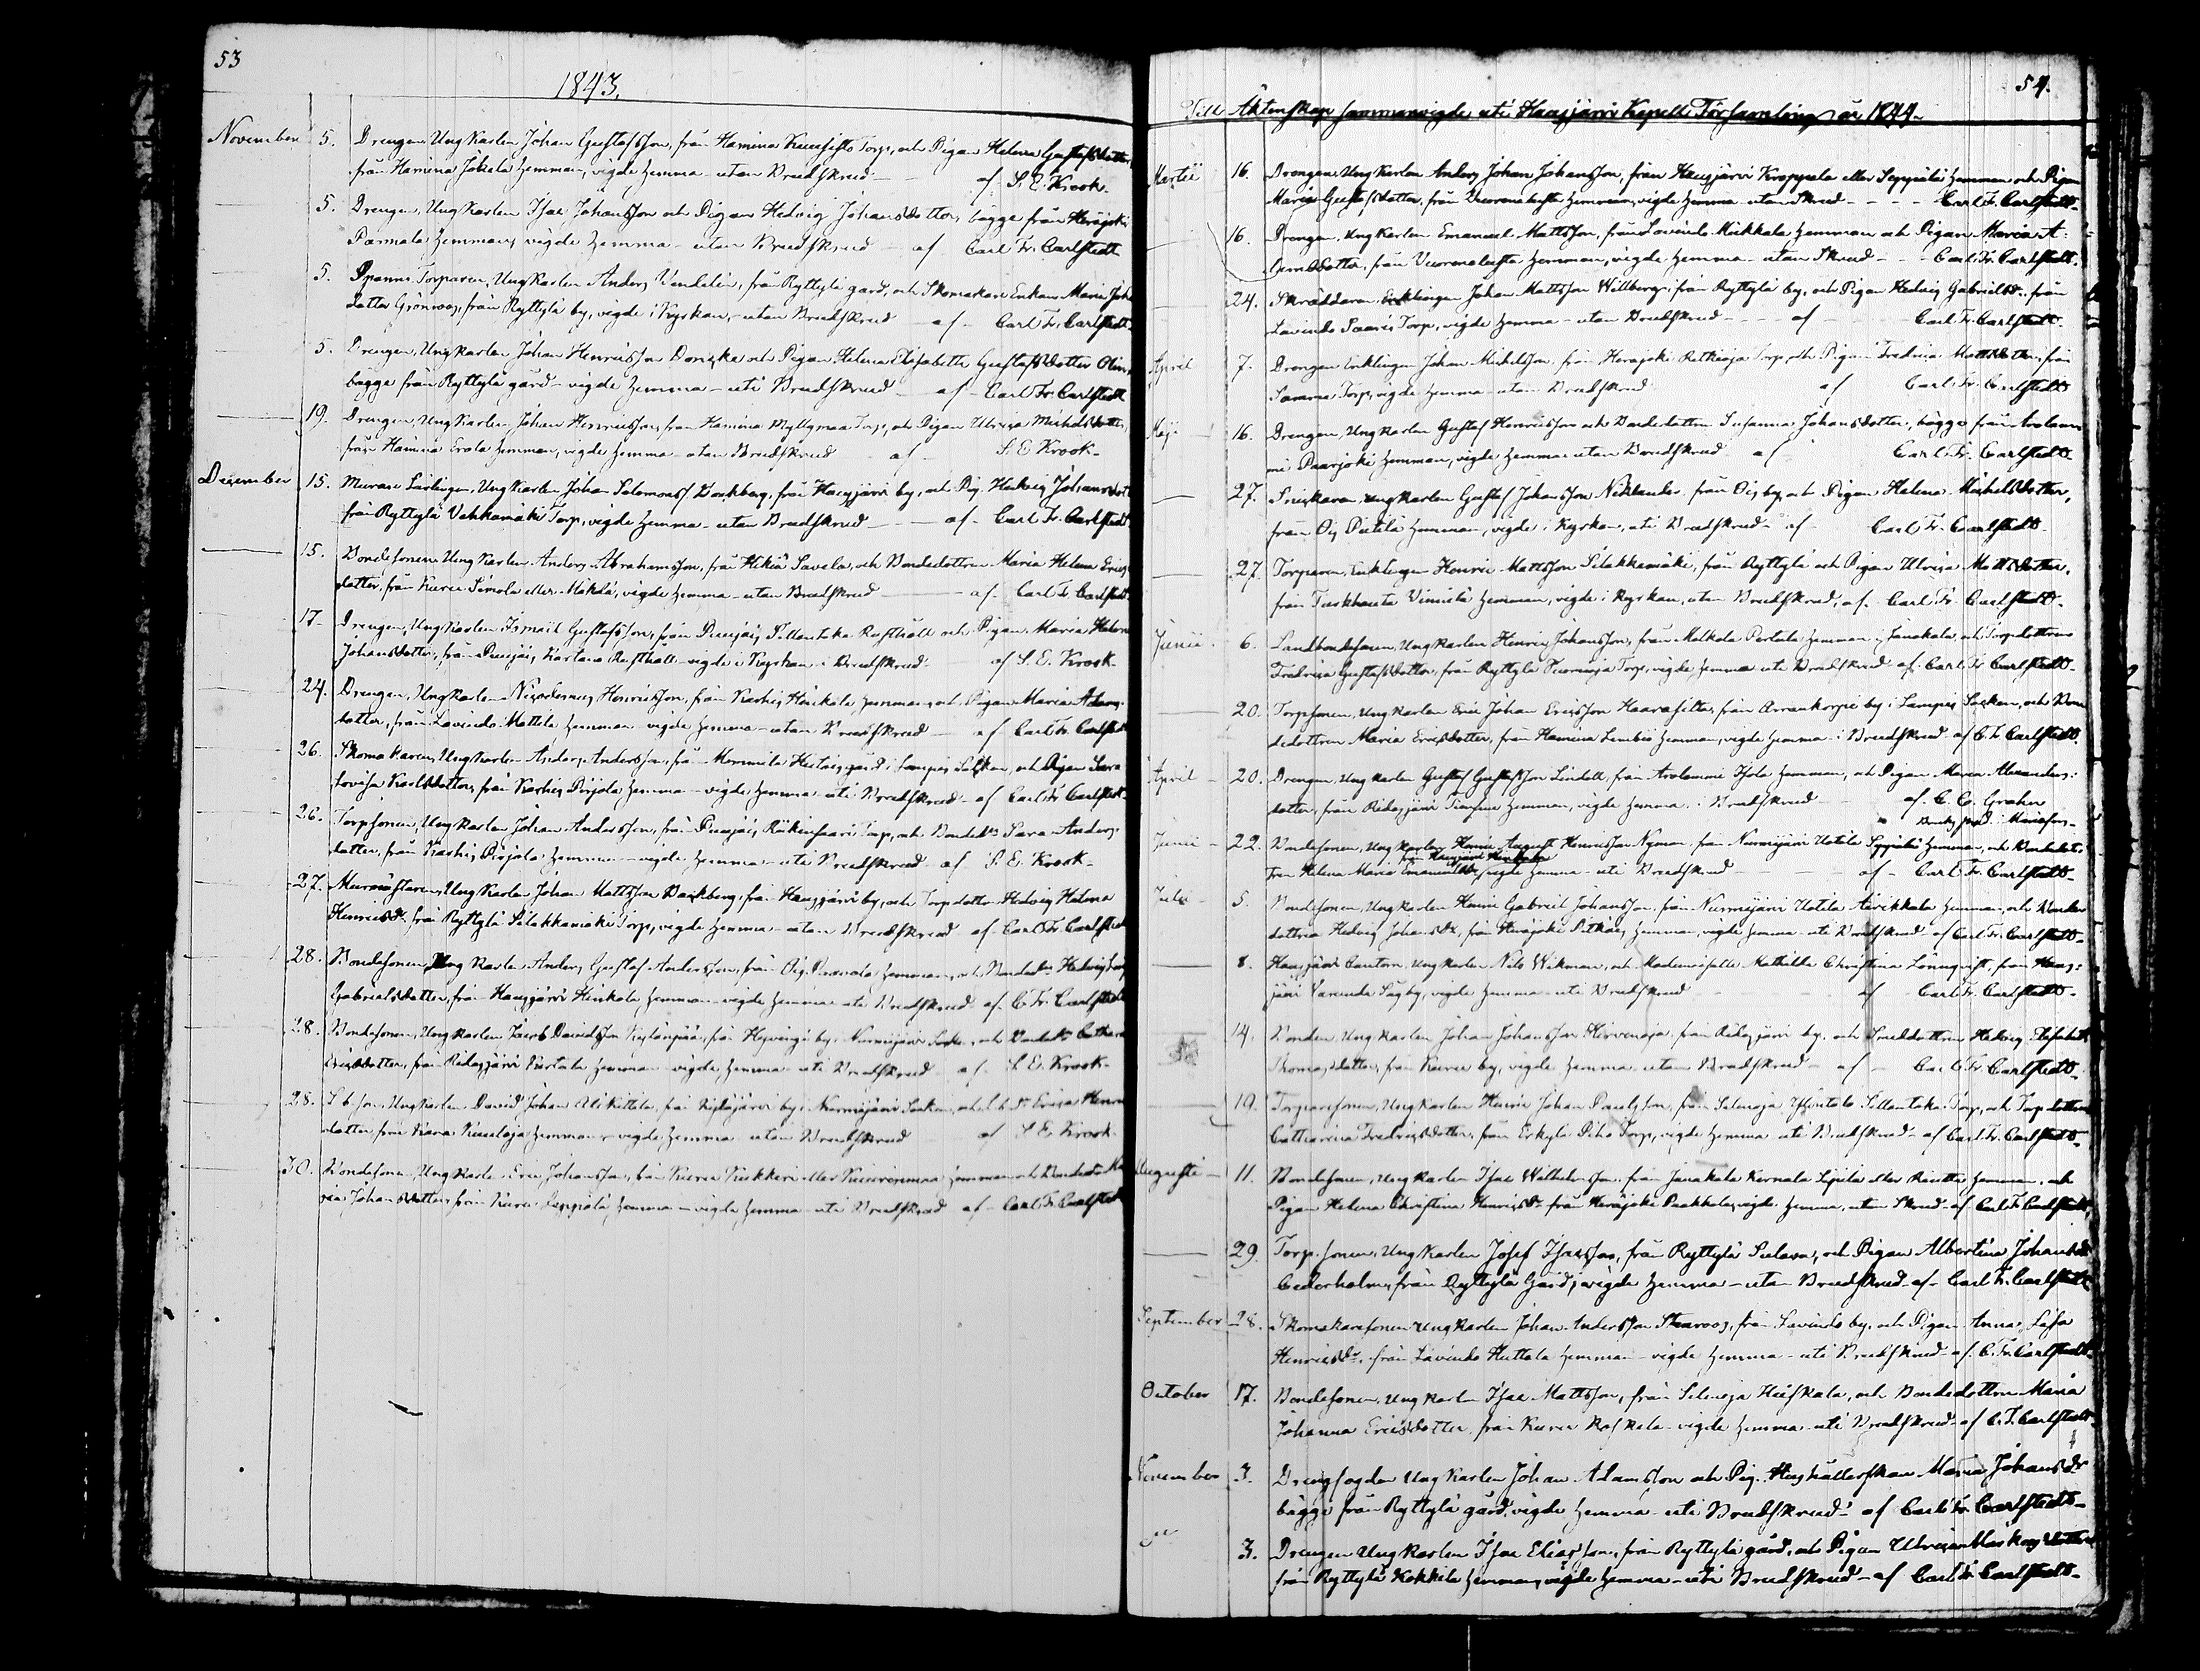 53
1843.
November 5. Drengen, Ungkarlen Johan Gustafsson, från Hamina Torp, och Pigan Helena Gustafsdotter,
från Hamina Jokela hemman, vigde hemma utan Brudskrud af S. E. Krook.
5. Drengen, Ungkarlen Isac Johansson och Pigan Hedvig Johansdotter, bägge från Herajoki
Parmala hemman, vigde hemma - utan Brudskrud - af - Carl Fr. Carlstedt
5. Torparen, Ungkarlen Anders Vendelin, från Ryttylä gård, och Skomakare Enkan Maria Joh
dotter Grönroos, från Ryttylä by, vigde i Kyrkan, - utan Brudskrud - af - Carl Fr. Carlstedt
5. Drengen, Ungkarlen Johan Henricsson och Pigan Helena Elisabeth Gustafsdotter
bägge från Ryttylä gård - vigde hemma - uti Brudskrud - af - Carl Fr. Carlstedt
19. Drengen, Ungkarlen Johan Henricsson, från Hamina Myllymaa Torp, och Pigan Ulrica Michelsdotter,
från Hamina Erola hemman, vigde hemma - utan Brudskrud af - S. E. Krook -
December 15. Murare Lärlingen, Ungkarlen Johan Salomonss Backberg, från Hausjärvi by, och Pig. Hedvig Johansdott
från Ryttylä Vahkamäki Torp, vigde hemma - utan Brudskrud - af - Carl Fr. Carlstedt
15. Bondesonen Ungkarlen Anders Abrahamsson, från Hikiä Savela, och Bondedottren Maria Helena Erics
dotter, från Kuru Simola eller Mäkilä, vigde hemma - utan Brudskrud - af - Carl Fr. Carlstedt
17. Drengen, Ungkarlen Ismail Gustafsson, från Rusthåll och Pigan Maria Helena
Johansdotter, från Kartano Rusthåll - vigde i Kyrkan - i Brudskrud af S. E. Krook.
24. Drengen, Ungkarlen Nicodemus Henricsson, från Karhis Heikkilä hemman, och Pigan Maria Adams
dotter, från Lavindo Mattila hemman vigde hemma - utan Brudskrud af Carl Fr. Carlstedt
26. Skomakaren, Ungkarlen Anders Andersson, från i Lampis Socken, och Pigan Sara
Lovisa Karlsdotter, från Karhis Pirjola hemman - vigde hemma uti Brudskrud - af Carl Fr. Carlstedt
26. Torpsonen, Ungkarlen Johan Andersson, från Torp, och Sara Anders
dotter, från Karhis Pirjola hemman - vigde hemma - uti Brudskrud af S. E. Krook -
27. Ungkarlen Johan Mattsson Backberg, från Hausjärvi by, och Torpdottr. Hedvig Helena
Henricsdr. från Ryttylä Silakkamäki Torp, vigde hemma - utan Brudskrud af Carl Fr. Carlstedt
28. Bondesonen, Ungkarlen Anders Gustaf Andersson, från Ois hemman, och Hedvig
Gabrielsdotter, från Hausjärvi Heikola hemman - vigde hemma uti Brudskrud af C. Fr. Carlstedt
28. Bondesonen, Ungkarlen Jacob Davidsson från Hyvinge by i Nurmijärvi Sockn, och
Ericsdotter, från Ridasjärvi hemman - vigde hemma uti Brudskrud af S. E. Krook -
28. Ungkarlen David Johan från by i Nurmijärvi Socken, och Erica Henric
dotter från Kara hemman - vigde hemma utan Brudskrud af S. E. Krook
30. Bondesonen, Ungkarlen Eric Johansson, från Kuru eller hemman och Bondedr. Ma
ria Johansdotter, från Kuru Seppälä hemman - vigde hemma - uti Brudskrud af - Carl Fr. Carlstedt
54.
Till Äktenskap sammanvigde uti Hausjärvi Kapell Församling år 1844.
Martii 16. Drengen Ungkarlen Anders Johan Johansson, från Hausjärvi eller Seppälä hemman och Pigan
Maria Gustafsdotter, från hemman, vigde hemma - utan Skrud - - - Carl Fr. Carlstedt.
16. Drengen, Ungkarlen Emanuel Mattsson, från Lavindo Mikkola hemman och Pigan Maria A
damsdotter, från hemman, vigde hemma - utan Skrud - - - Carl Fr. Carlstedt.
24. Skräddaren, Enklingen Johan Mattsson Willberg, från Ryttylä by, och Pigan Hedvig Gabrielsdr. från
Lavindo Saaris Torp, vigde hemma - utan Brudskrud - - af Carl Fr. Carlstedt.
April 7. Drengen Enklingen Johan Michelsson, från Herajoki Torp, och Pigan Fredrica Mattsdotter från
Samma Torp, vigde hemma - utan Brudskrud af Carl Fr. Carlstedt
Maji 16. Drengen, Ungkarlen Gustaf Henricsson och Bondedottren Susanna Johansdotter, bägge från Arolam
mi Paarjoki hemman, vigde hemma utan Brudskrud af Carl Fr. Carlstedt
27. Ungkarlen Gustaf Johansson Niklander från Ois by, och Pigan Helena Michelsdotter,
från Ois hemman, vigde i Kyrkan, uti Brudskrud - af Carl Fr. Carlstedt
27. Torparen, Enklingen Henric Mattsson Silakkamäki, från Ryttylä och Pigan Ulrica Mattsdotter,
från Turkhauta hemman, vigde i Kyrkan, utan Brudskrud, af Carl Fr. Carlstedt.
Junii 6. Ungkarlen Henric Johansson, från Perttula hemman i Janakala, och Torpdottren
Fredrica Gustafsdotter, från Ryttylä Torp, vigde hemma uti Brudskrud af Carl Fr. Carlstedt
20. Torpsonen, Ungkarlen Eric Johan Ericsson från by i Lampis Socken, och Bon
dedottren Maria Ericsdotter, från Hamina hemman, vigde hemma - i Brudskrud af C. Fr. Carlstedt.
April 20. Drengen, Ungkarlen Gustaf Gustafsson Lindell, från Arolammi hemman, och Pigan Maria Alexanders
dotter, från Ridasjärvi hemman, vigde hemma i Brudskrud af C. G. Grahn
Junii 22. Bondesonen, Ungkarlen Henric August Henricsson Nyman från Nurmijärvi Uotila Seppälä hemman, och Bondedot
från Hausjärvi Heikola
tren Helena Maria Emanuelsdr. vigde hemma - uti Brudskrud - af - Carl Fr. Carlstedt
Julii 5. Bondesonen, Ungkarlen Henric Gabriel Johansson, från Nurmijärvi Uotila hemman, och Bonde
dottren Hedvig Johansdr., från Herajoki hemman, vigde hemma - uti Brudskrud - af Carl Fr. Carlstedt
8. Hausjärvi Cantorn Ungkarlen Nils Wikman, och Mademoiselle Mathilda Christina Lönnqvist, från Haus-
järvi by, vigde hemma uti Brudskrud af Carl Fr. Carlstedt
14. Bonden Ungkarlen Johan Johansson Hirvenoja, från Ridasjärvi by, och Hedvig Elisabeth
Thomasdotter, från Kuru by, vigde hemma utan Brudskrud - af - Carl Fr. Carlstedt
19. Torparesonen, Ungkarlen Henric Johan Paulsson, från Selenoja Sillantaka Torp, och Torpdottren
Catharina Fredricsdotter, från Erkylä Piha Torp, vigde hemma uti Brudskrud - af Carl Fr. Carlstedt
Augusti 11. Bondesonen, Ungkarlen Isac Wilhelmsson, från Janakala Kernala eller hemman, och
Pigan Helena Christina Henricsdr. från Herajoki vigde hemma, utan Skrud - af Carl Fr. Carlstedt
29. Torpsonen, Ungkarlen Josef Isacsson, från Ryttylä och Pigan Albertina Johansdr
Cederholm, från Ryttylä Gård, vigde hemma - utan Brudskrud - af - Carl Fr. Carlstedt
September 28. Skomakaresonen Ungkarlen Johan Andersson från Lavindo by, och Pigan Anna Lisa
Henricsdr. från Lavindo Huttala hemman - vigde hemma - uti Brudskrud - af C. Fr. Carlstedt.
October 17. Bondesonen, Ungkarlen Isac Mattsson, från Selenoja Heiskala, och Bondedottren Maria
Johanna Ericsdotter, från Kuru Koskela - vigde hemma - uti Brudskrud - af C. F. Carlstedt
November 3. Drengfogden Ungkarlen Johan Adamsson och Pig. Hushållerskan Maria Johansdr
bägge från Ryttylä gård, vigde hemma - uti Brudskrud - af Carl Fr. Carlstedt -
3. Drengen Ungkarlen Isac Eliasson, från Ryttylä gård, och Pigan Ulrica Markusdotter
från Ryttylä Kokkila hemman, vigde hemma - uti Brudskrud - af Carl Fr. Carlstedt -